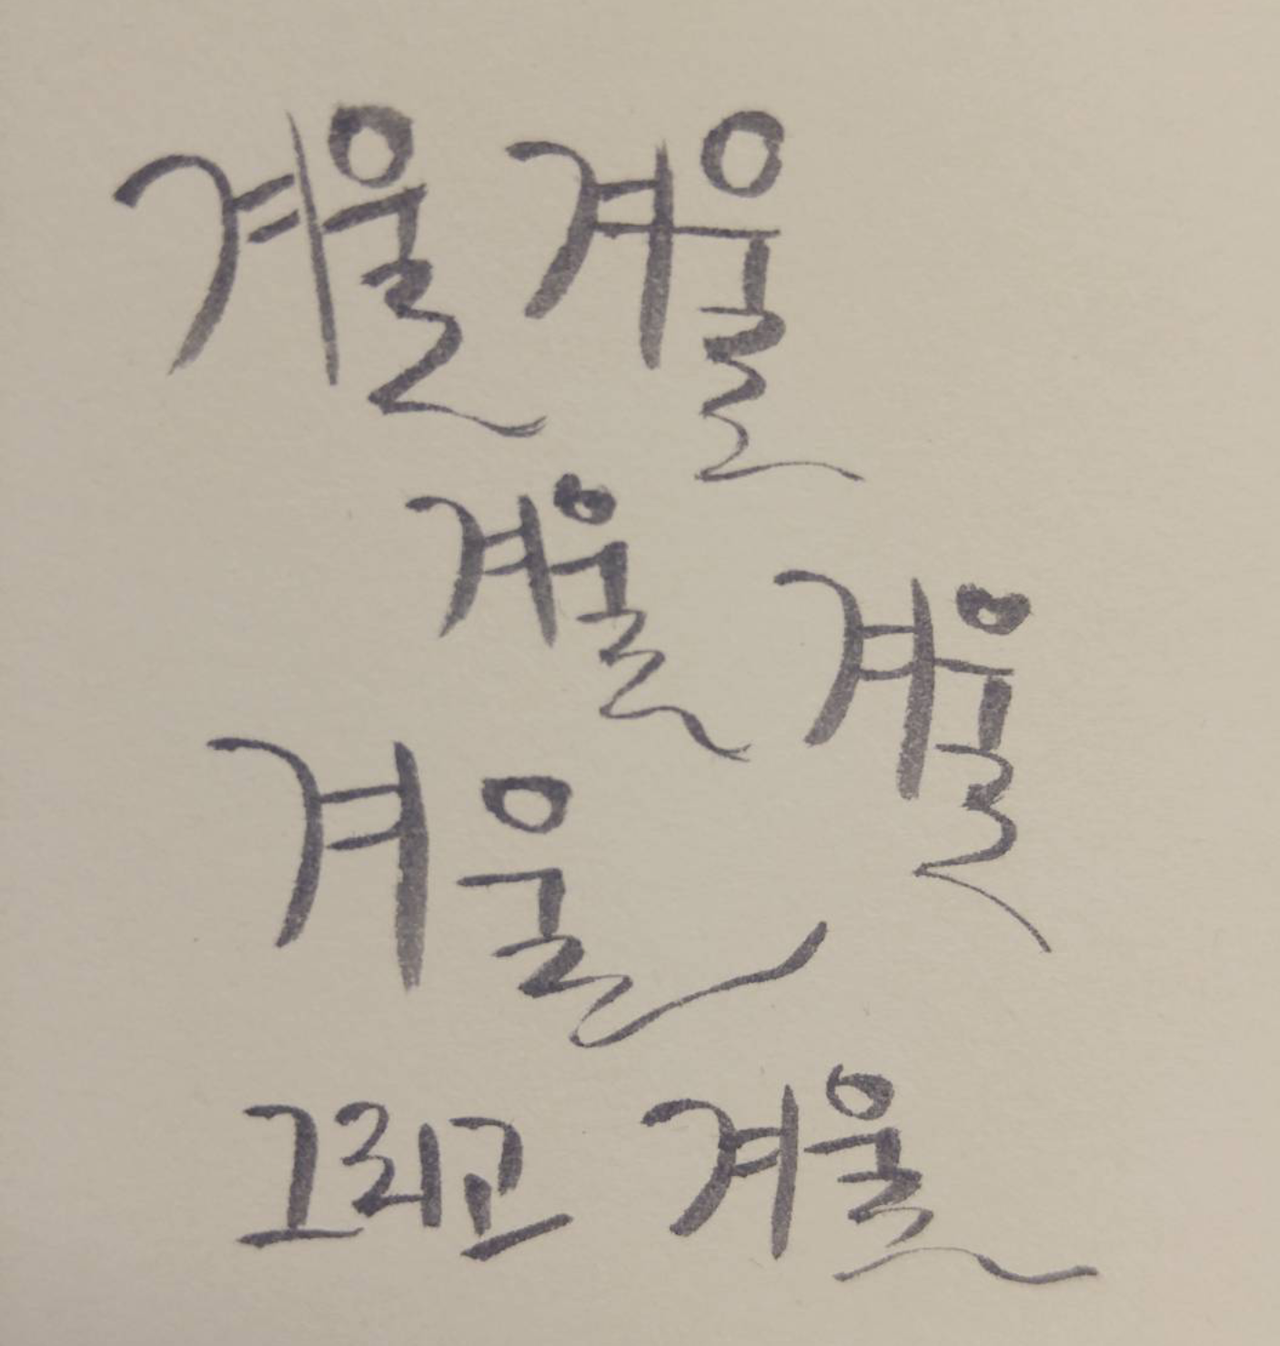 겨울 겨울
겨울 겨울
겨울
그리고 겨울